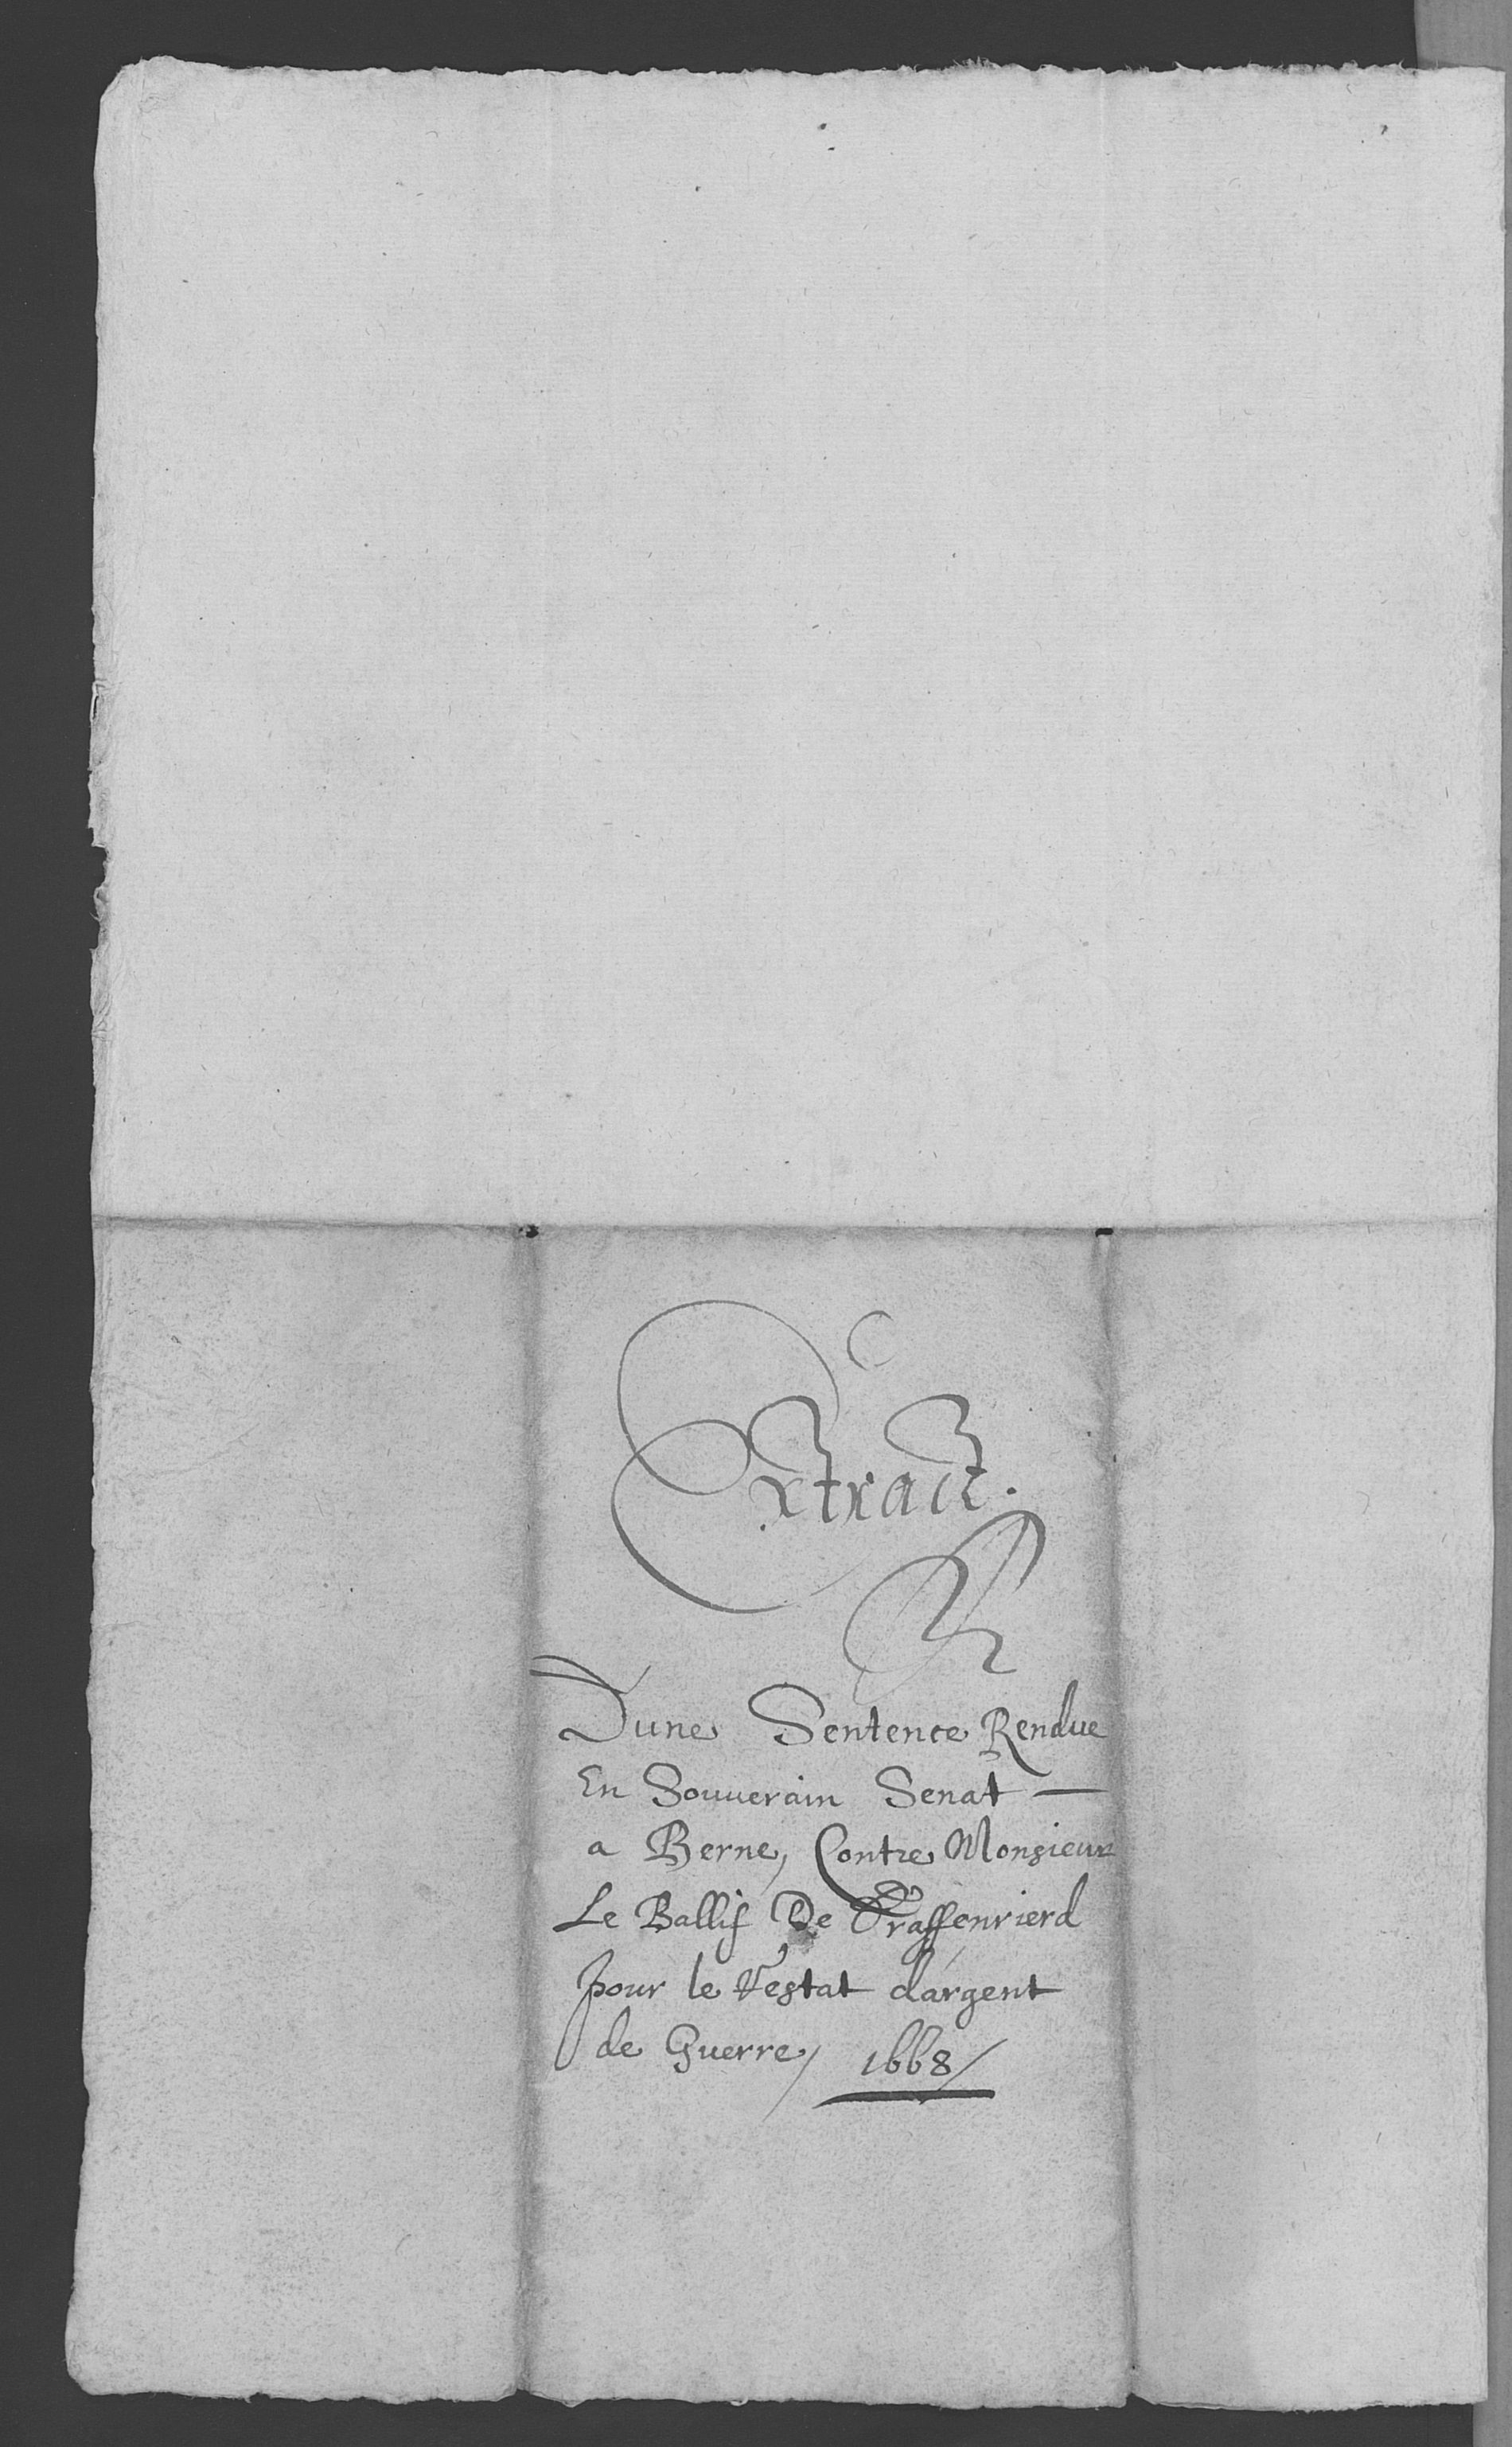 Extraict.
Dune Sentence Rendue
En Souuerain Senat —
a Berne, Contre Monsieur
Le Ballif De Graffenrierd
pour le restat dargent
de Guerre, 1668/